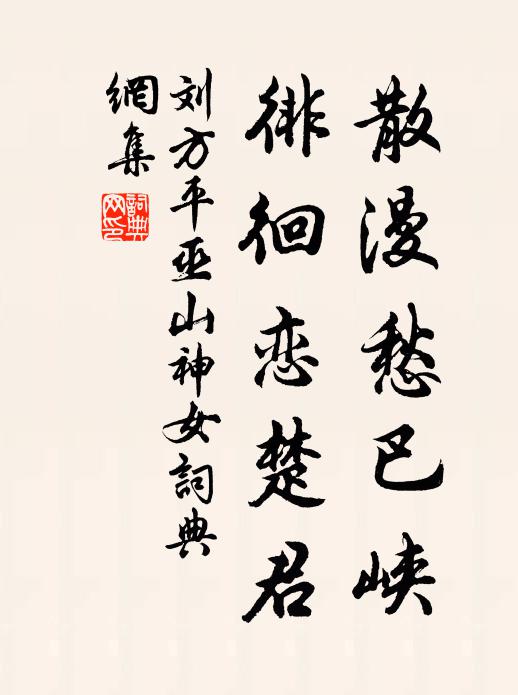 散漫愁巴峡
徘徊恋楚君
刘方平巫山神女詞典
網集
詞典网印